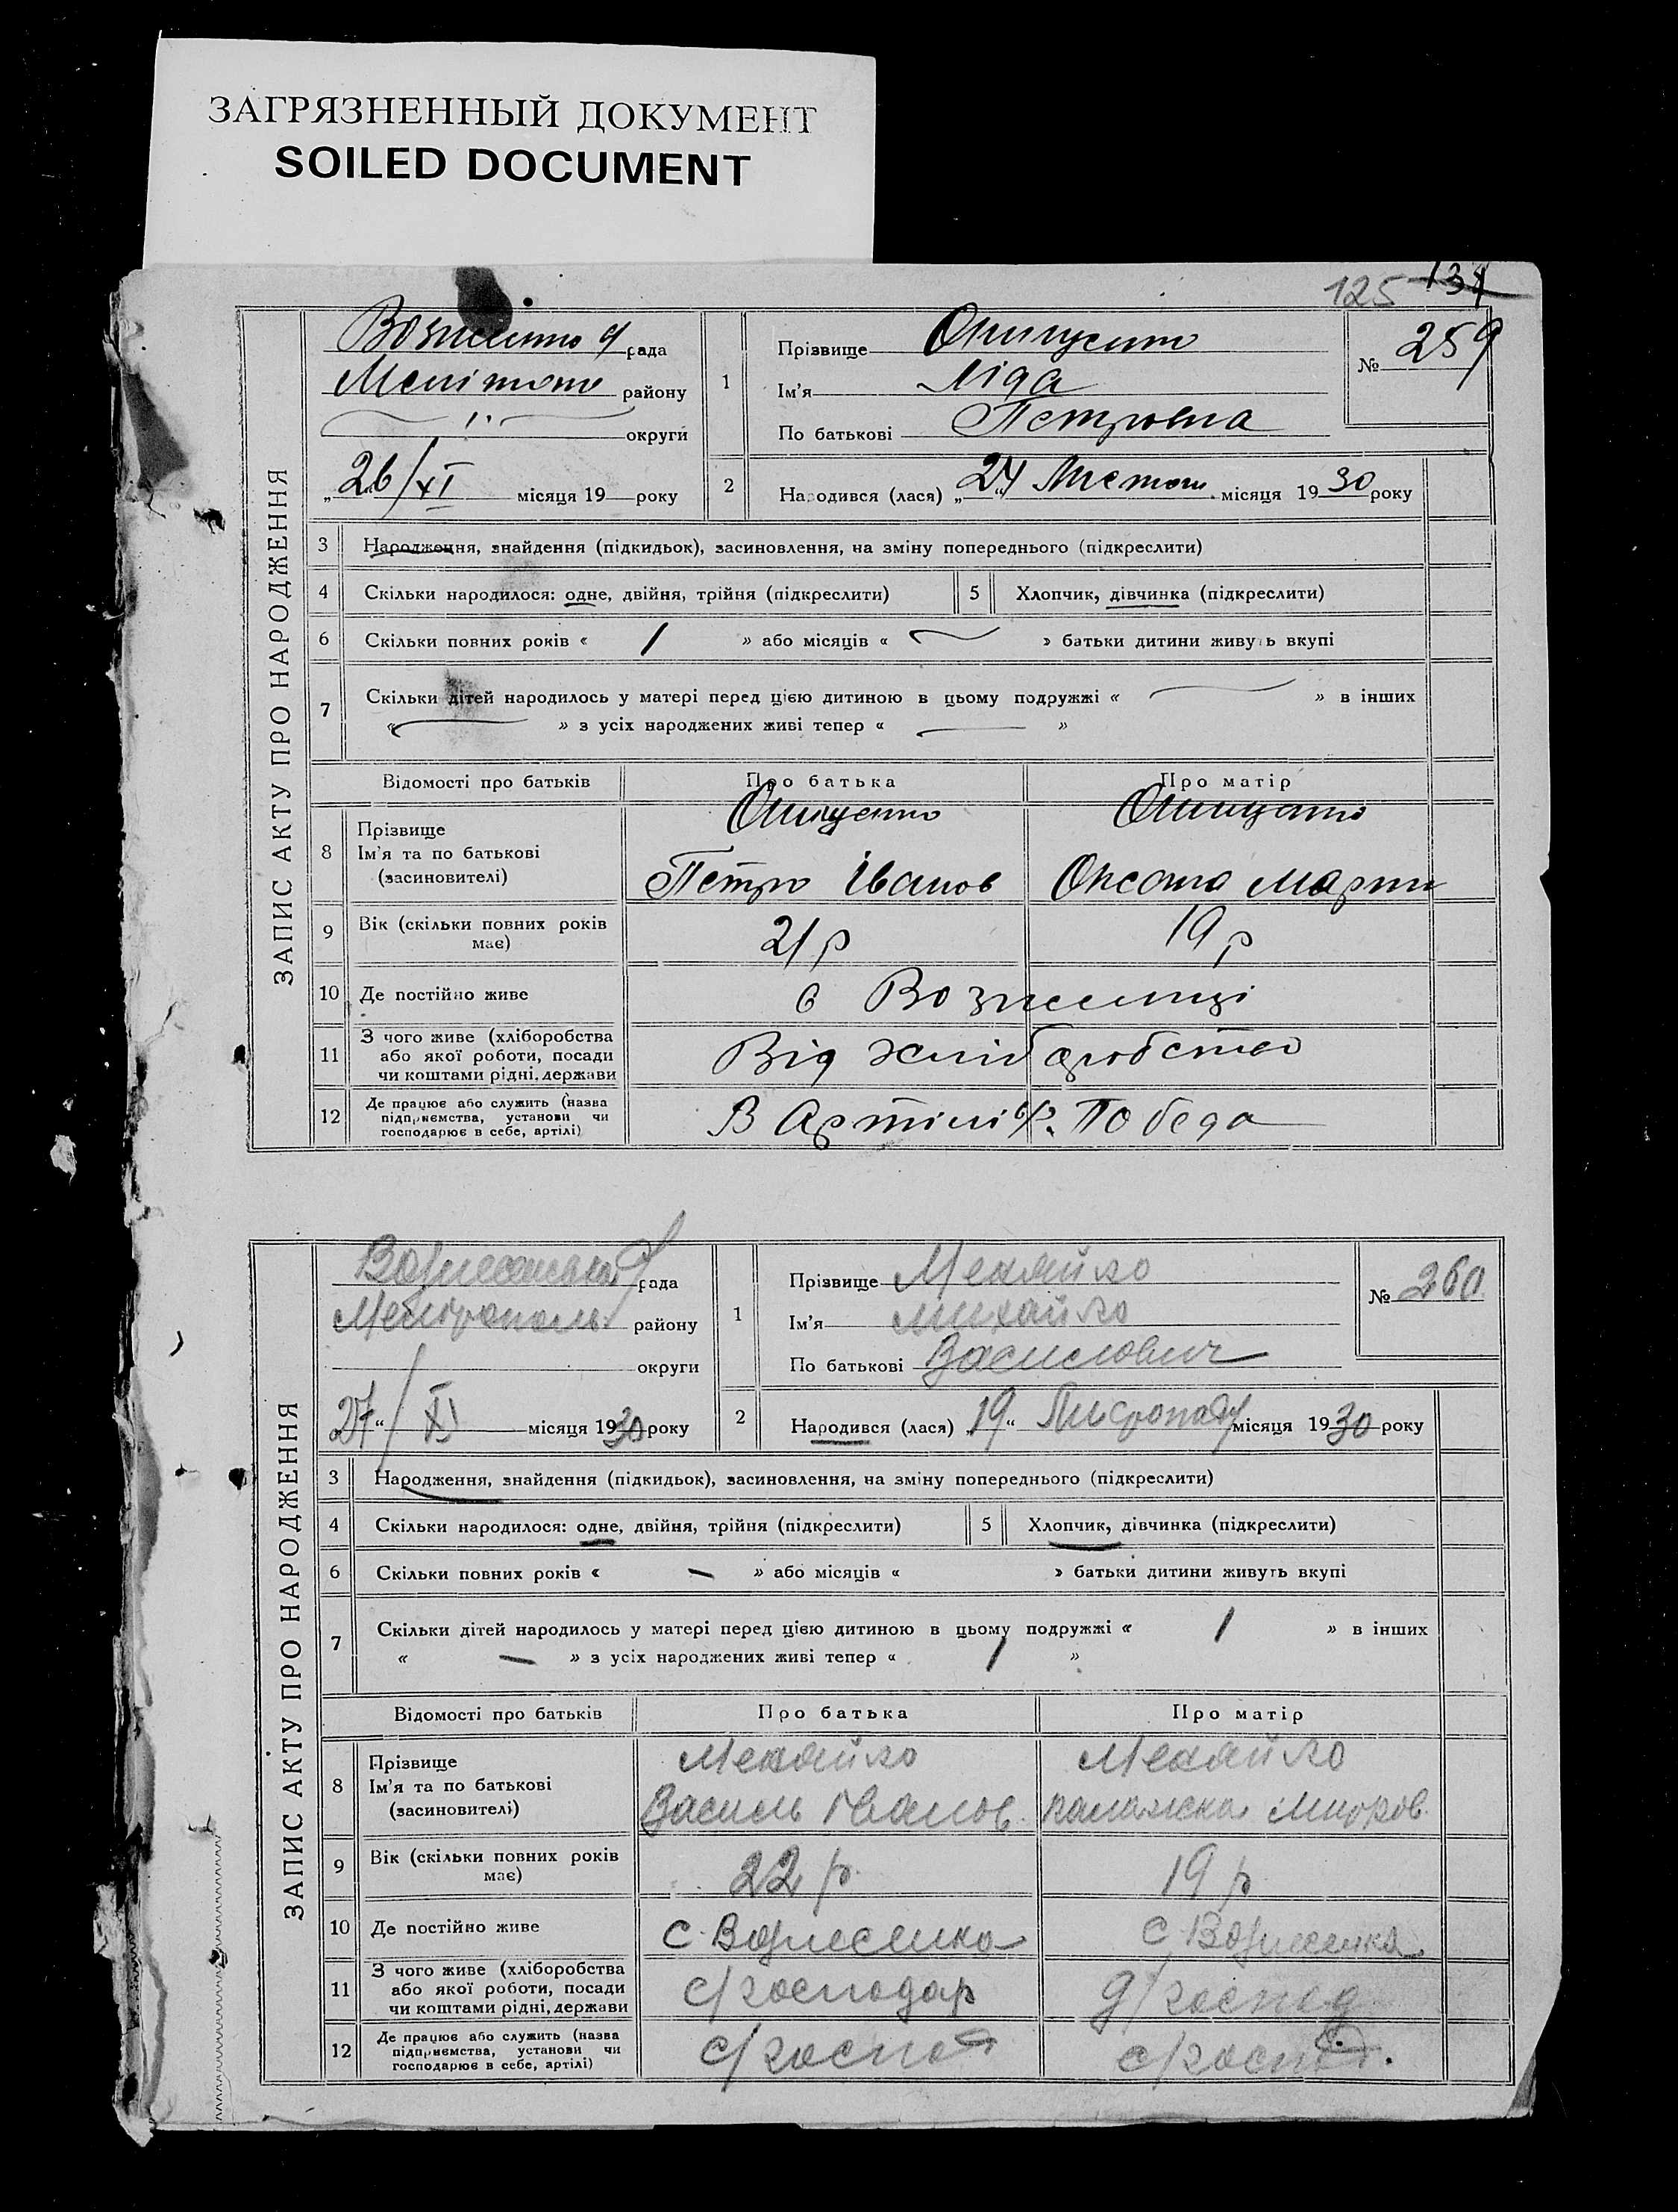 ЗАГРЯЗНЕННЫЙ ДОКУМЕНТ
SOILED DOCUMENT
125 134
ЗАПИС АКТУ ПРО НАРОДЖЕННЯ
рада
Меліто району
округи
„26/XI місяця 19 року
1
Прізвище
Ім'я Ліда
По батькові Петровна
№ 259
2
Народився (лася) „24“ Листоп. місяця 1930 року
3 Народження, знайдення (підкидьок), засиновлення, на зміну попереднього (підкреслити)
4 Скільки народилося: одне, двійня, трійня (підкреслити) 5 Хлопчик, дівчинка (підкреслити)
6 Скільки повних років « 1 » або місяців « — » батьки дитини живуть вкупі
7 Скільки дітей народилось у матері перед цією дитиною в цьому подружжі « — » в інших
« — » з усіх народжених живі тепер « — »
Відомості про батьків Про батька Про матір
8 Прізвище
Ім'я та по батькові
(засиновителі)
Петро Іванов Оксана Марти
9 Вік (скільки повних років має) 21 р 19 р
10 Де постійно живе в Вознесенці
11 З чого живе (хліборобства
або якої роботи, посади
чи коштами рідні, держави
Від хліборобства
12 Де працює або служить (назва
підприємства, установи чи
господарює в себе, артілі)
В Артілі Победа
ЗАПИС АКТУ ПРО НАРОДЖЕННЯ
Вознесенська рада
Мелітополь району
округи
27“/XI місяця 1930 року
1
Прізвище
Ім'я Михайло
По батькові Василович
№ 260
2
Народився (лася) „19“ Листопаду місяця 1930 року
3 Народження, знайдення (підкидьок), засиновлення, на зміну попереднього (підкреслити)
4 Скільки народилося: одне, двійня, трійня (підкреслити) 5 Хлопчик, дівчинка (підкреслити)
6 Скільки повних років « — » або місяців « » батьки дитини живуть вкупі
7 Скільки дітей народилось у матері перед цією дитиною в цьому подружжі « 1 » в інших
« — » з усіх народжених живі тепер « 1 »
Відомості про батьків Про батька Про матір
8 Прізвище
Ім'я та по батькові
(засиновителі)
Василь Іванов. Паламска
9 Вік (скільки повних років має) 22 р. 19 р
10 Де постійно живе с. Вознесенка с. Вознесенка
11 З чого живе (хліборобства
або якої роботи, посади
чи коштами рідні, держави
с/господар д/господ
12 Де працює або служить (назва
підприємства, установи чи
господарює в себе, артілі)
с/господ с/господ.